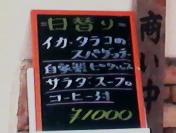 日替り
イカ・タラコの
スパゲッティ
自家製ピークルス
サラダ スープ
コーヒー付
¥1000
商い中